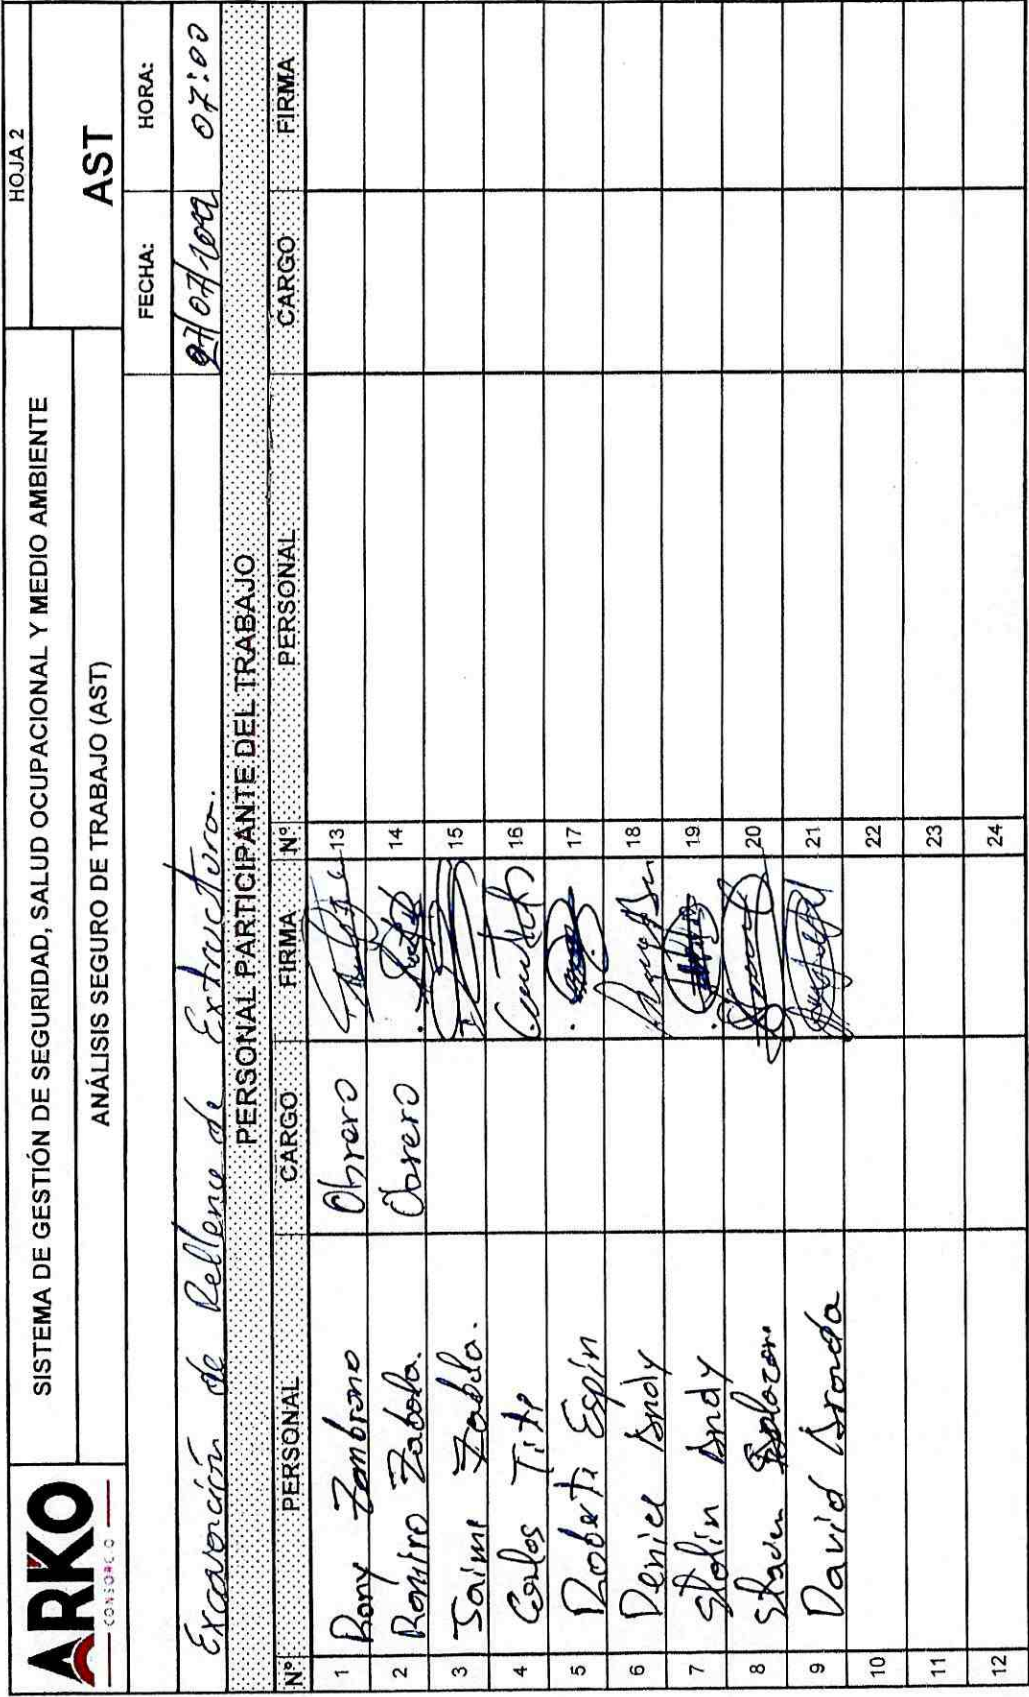 ARKO
CONSORCIO
SISTEMA DE GESTIÓN DE SEGURIDAD, SALUD OCUPACIONAL Y MEDIO AMBIENTE
HOJA 2
ANÁLISIS SEGURO DE TRABAJO (AST)
AST
FECHA: HORA:
Excavación de Relleno de Extructura. 07:00
PERSONAL PARTICIPANTE DEL TRABAJO
Nº PERSONAL CARGO FIRMA Nº PERSONAL CARGO FIRMA
1 Rony Zambrano Obrero 13
2 Ramiro Zabala. Obrero 14
3 Jaime Zabala. 15
4 Carlos Tite 16
5 Roberti Espín 17
6 Deniel Andy 18
7 Stalin Andy 19
8 Salazar 20
9 David Aranda 21
10 22
11 23
12 24